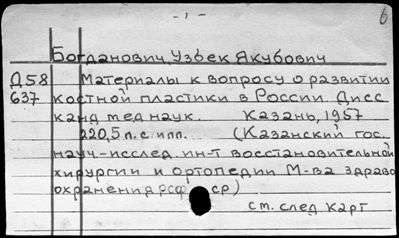 - 1 -
6
Богданович, Узбек Якубович
Д58 Материалы к вопросу о развитии
637 костной пластики в России. Дисс
канд мед наук. Казань, 1957
220,5 п. с. илл. (Казанский гос.
науч-исслед. ин-т восстановительной
хирургии и ортопедии М-ва здраво
охранения РСФСР)
см. след карт